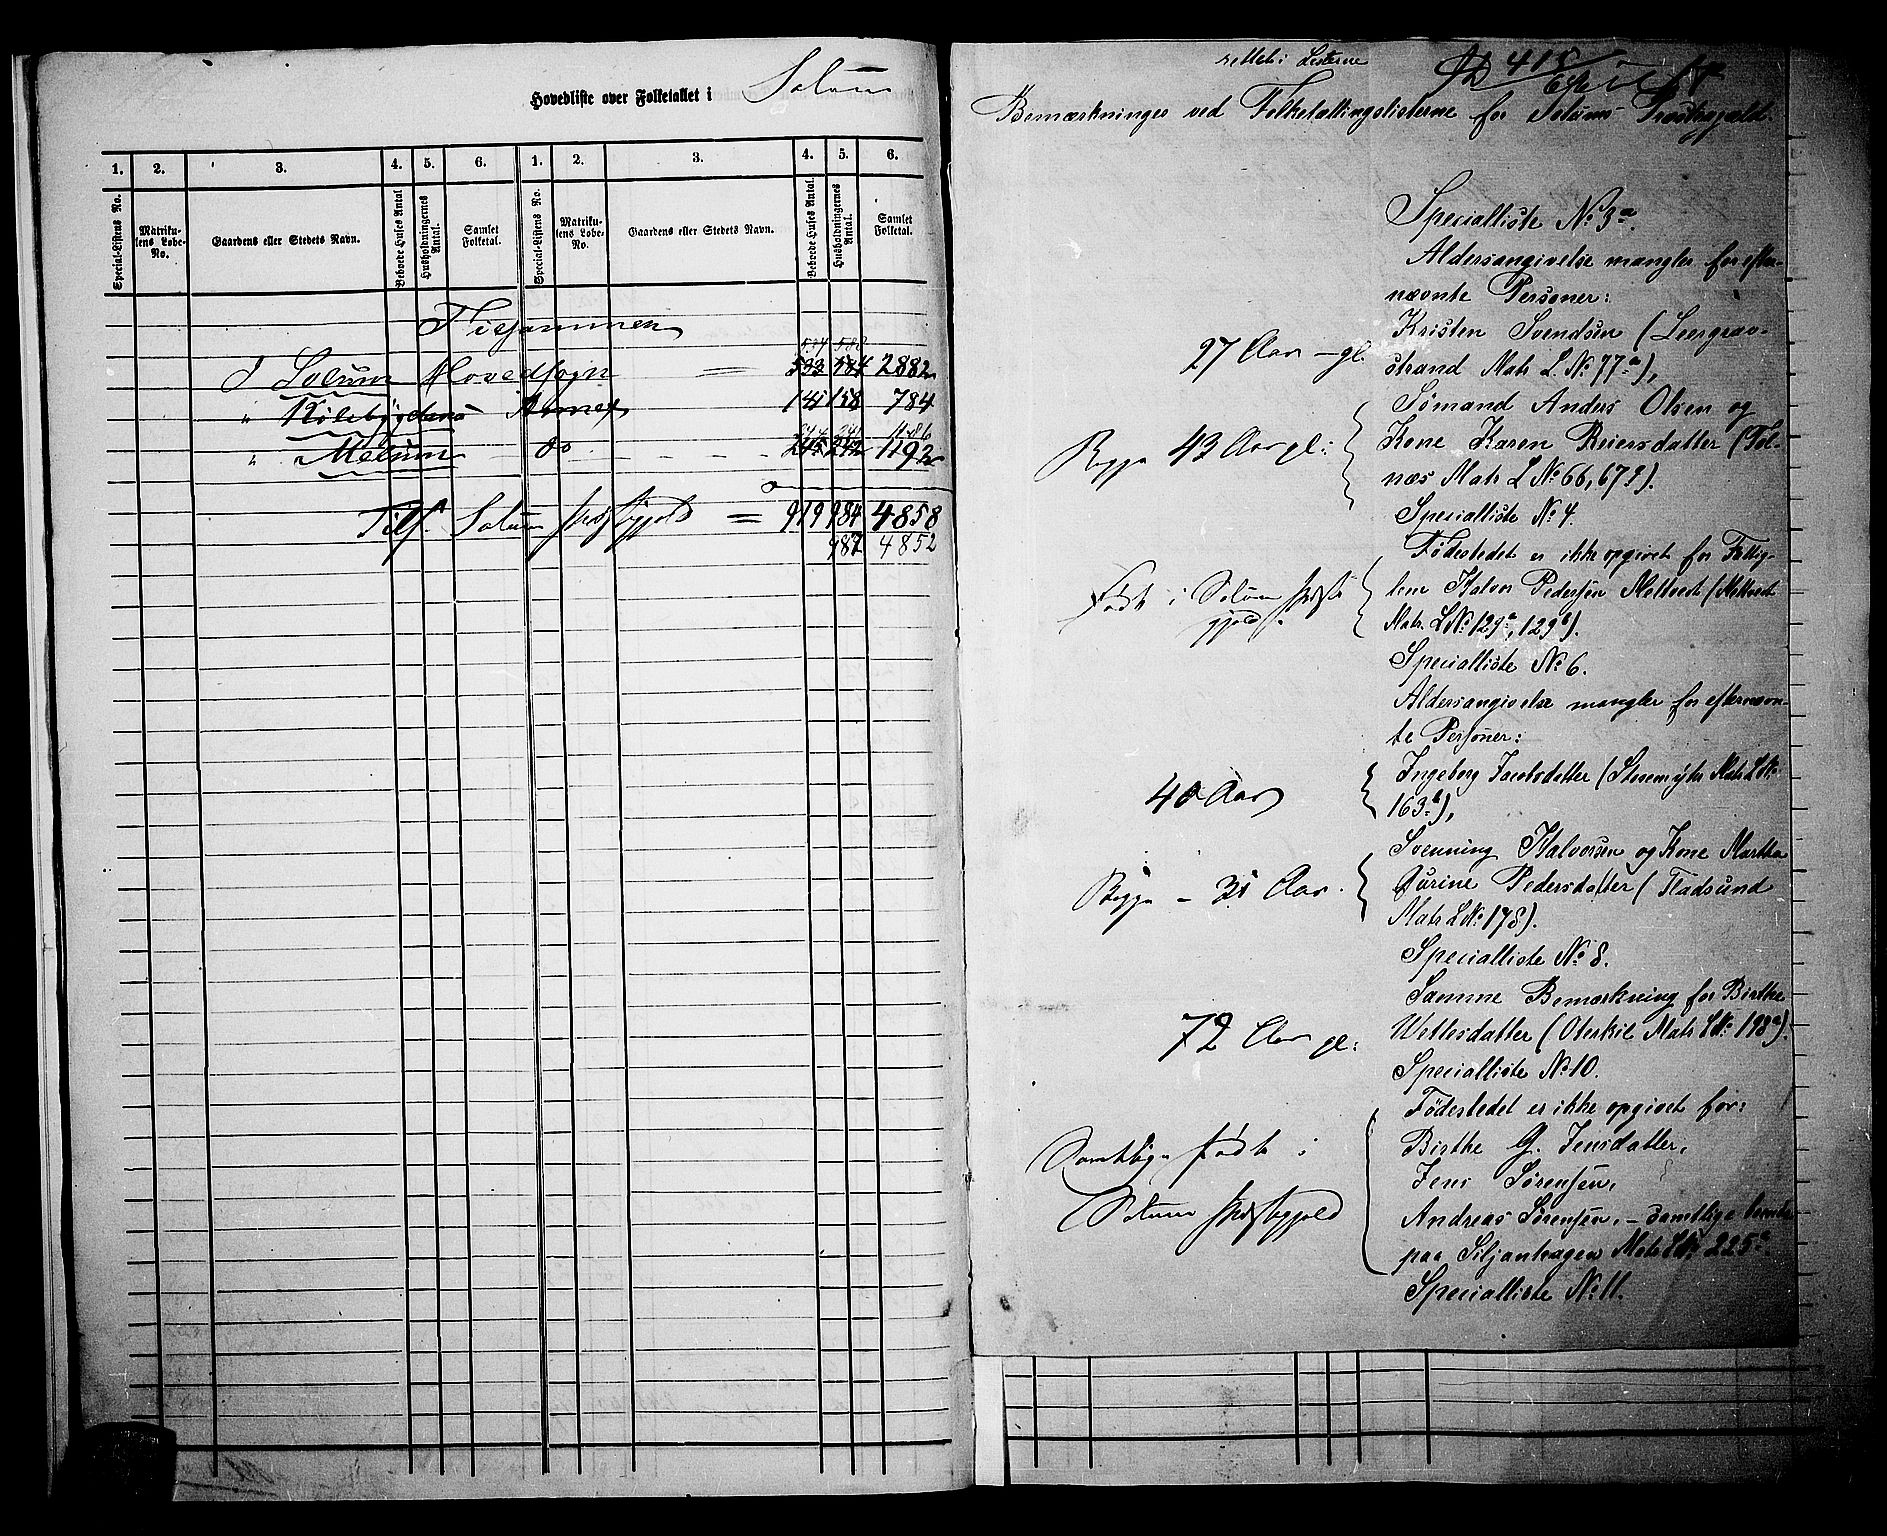 Hovedliste over Folketallet i Solum
1. 2. 3. 4. 5. 6. 1. 2. 3. 4. 5. 6.
Special-Listens No. Matrikulens Løbe-No. Gaardens eller Stedets Navn. Beboede Huses Antal Husholdningernes Antal. Samlet Folketal. Special-Listens No. Matrikulens Løbe-No. Gaardens eller Stedets Navn. Beboede Huses Antal. Husholdningernes Antal. Samlet Folketal.
Tilsammen
I Solum Hovedsogn = 533 584 2882
" Kilebygdens Annex 141 158 784
244 241 1186
" Melum do 245 242 1192
Tils. Solum Præstegjeld = 919 984 4858
982 4852
rettet i Listerne
Bemærkninger ved Folketællingslisterne for Solums Præstegjæld.
Specialliste No 3a.
Aldersangivelse mangler for efter-
nævnte Personer:
Kristen Svendsen (Leergrav-
27 Aar - gl.
strand Matr. L. No 77a),
Sømand Anders Olsen og
Begge 43 Aar gl:
Kone Karen Reiersdatter (Tol-
næs Matr L No 66, 67).
Specialliste No 4.
Fødestedet er ikke opgivet for Fattig-
Født i Solum Præste
gjeld.
lem Halvor Pedersen Meltveit (Meltveit
Matr. L No 129a, 129b).
Specialliste No 6.
Aldersangivelse mangler for efternævn-
te Personer:
Ingeborg Jacobsdatter (Stenmyhr Matr L No
40 Aar
163b),
Svenning Halvorsen og Kone Martha
Begge - 31 Aar.
Gurine Pedersdatter (Fladsund
Matr L No 178).
Specialliste No 8.
Samme Bemærkning for Birthe
72 Aar gl:
Wettlesdatter (Oterkil Matr L No 198a).
Specialliste No 10.
Fødestedet er ikke opgivet for:
Samtlige født i
Birthe G. Jensdatter,
Jens Sørensen,
Solum Præstegjeld
Andreas Sørensen, - samtlige
paa Siljanhagen Matr L No 225a.
Specialliste No 11.